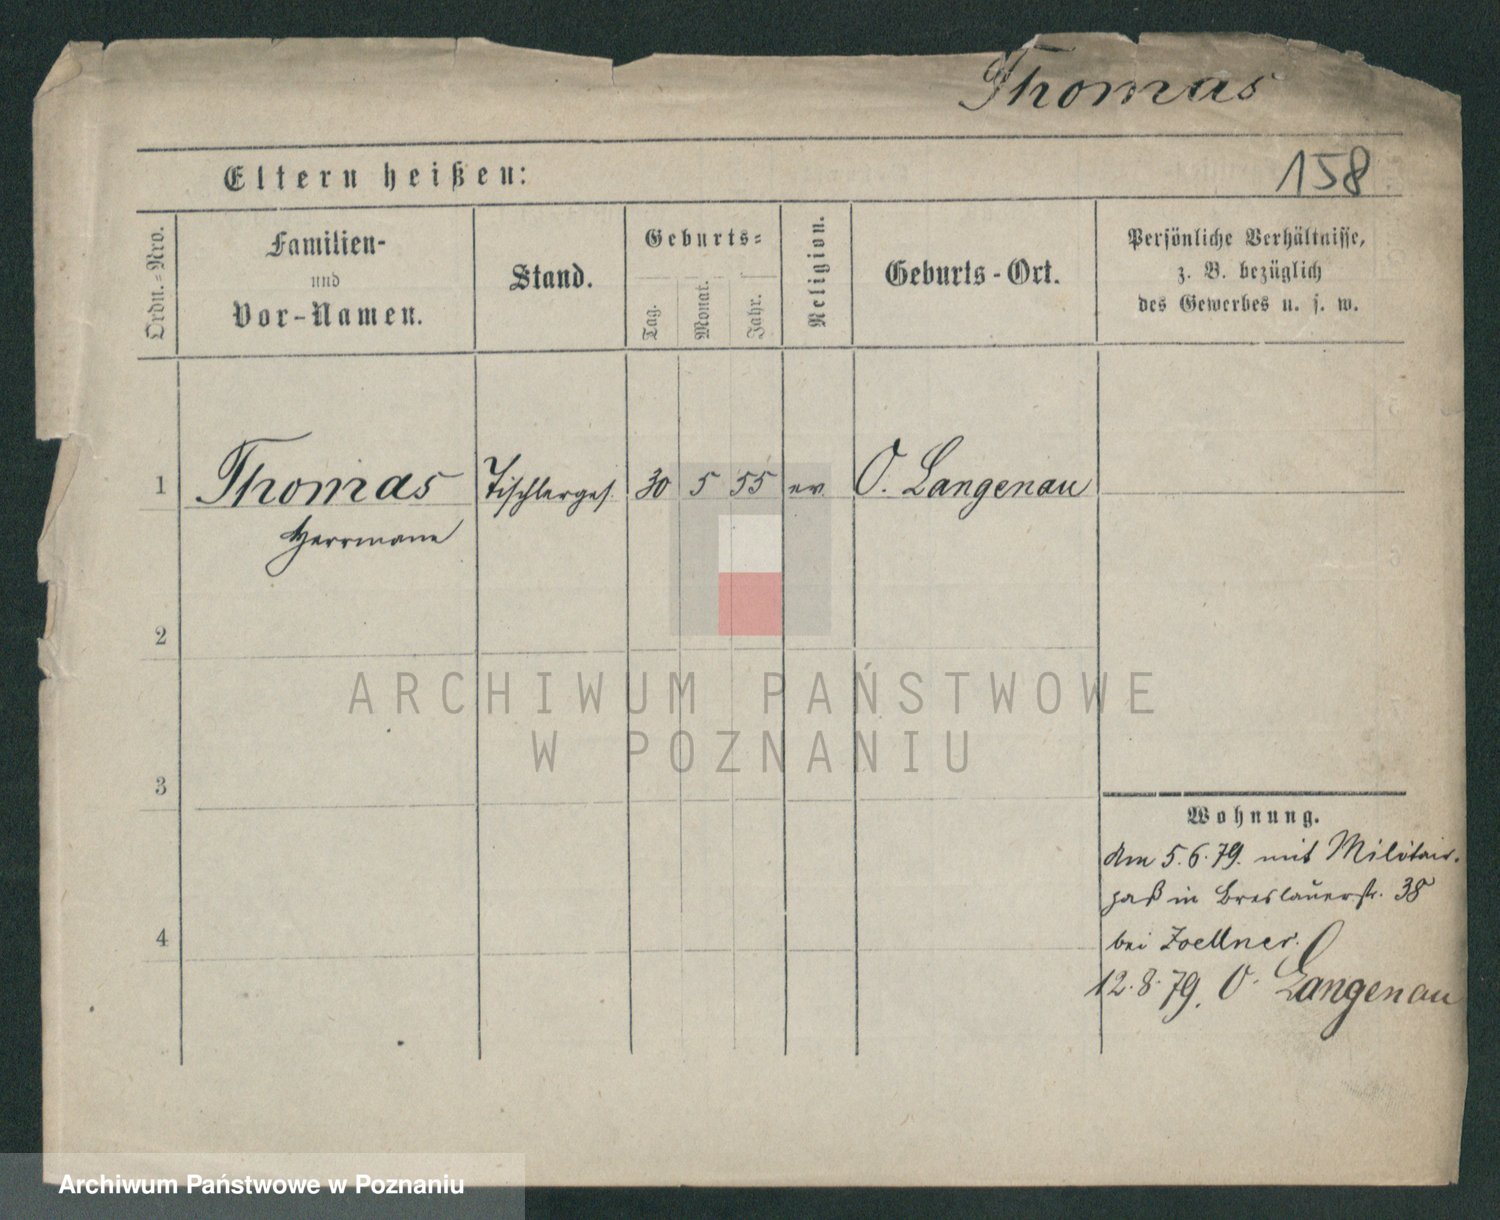 Thomas
158
Eltern heißen:
Ordn.=Nro.
Familien-
und
Vor-Namen.
Stand.
Geburts=
Tag.
Monat.
Jahr.
Religion.
Geburts-Ort.
Persönliche Verhältnisse,
z. B. bezüglich
des Gewerbes u. s. w.
1 Thomas Tischlerges. 30 5 55 ev O. Langenau
Herrmann
2
3
4
ARCHIWUM PAŃSTWOWE
W POZNANIU
Wohnung.
Am 5.6.79. mit Militair-
paß in Breslauerstr. 38
bei Zoellner.
12.8.79. O. Langenau
Archiwum Państwowe w Poznaniu